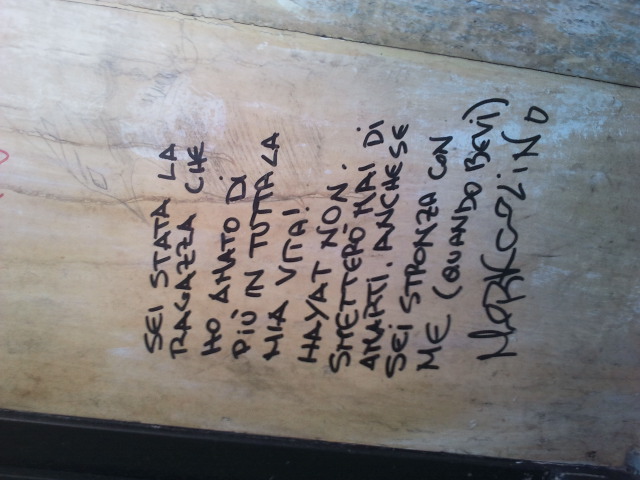 SEI STATA LA
RAGAZZA CHE
HO AMATO DI
PIÙ IN TUTTA LA
MIA VITA!
HAYAT NON
SMETTERÒ MAI DI
AMARTI. ANCHE SE
SEI STRONZA CON
ME (QUANDO BEVI)
MARKOLINO